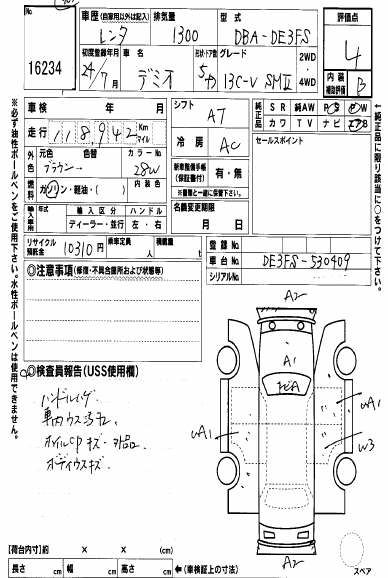 No.
16234
車歴 (自家用以外は記入) 排気量 型式
レンタ 1300 DBA-DE3FS
初度登録年月 車名 形状・ドア数 グレード 2WD・4WD
24/7月 デミオ 5ドア 13C-V SMⅡ
評価点
4
内装補助評価 B
車検 年 月
走行 118,942 Km マイル
外色 元色 色替 カラーNo.
ブラウン→ 28W
燃料 ガソリン・軽油・( ) 内装色
輸入車用 年式 輸入区分 ハンドル
ディーラー・並行 左・右
リサイクル預託金 10310円 乗車定員 人 積載量 t
シフト AT
冷房 AC
新車整備手帳(保証書付) 有・無
※書類と一緒に保管下さい。
名義変更期限 月 日
純正品 SR 純AW PS PW
カワ TV ナビ エアB
セールスポイント
登録No.
車台No. DE3FS-530409
シリアルNo.
◎注意事項(修復・不具合箇所および状態等)
◎検査員報告(USS使用欄)
車内ウス汚れ.
※必ず油性ボールペンをご使用下さい。水性ボールペンは使用できません。
←純正品に限り該当に○をつけて下さい。
A2
A1
A2
【荷台内寸】約 × × (cm)
長さ cm 幅 cm 高さ cm ←(車検証上の寸法)
スペア